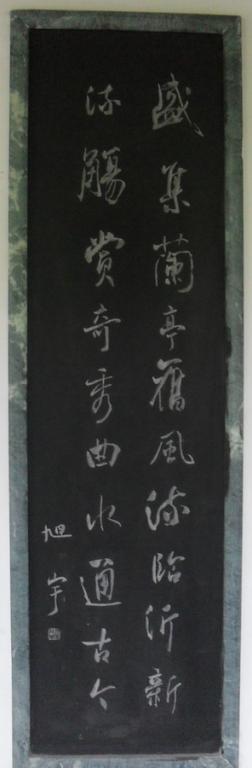 盛集蘭亭舊風流臨沂新
流觴賞奇秀曲水通古今
旭宇